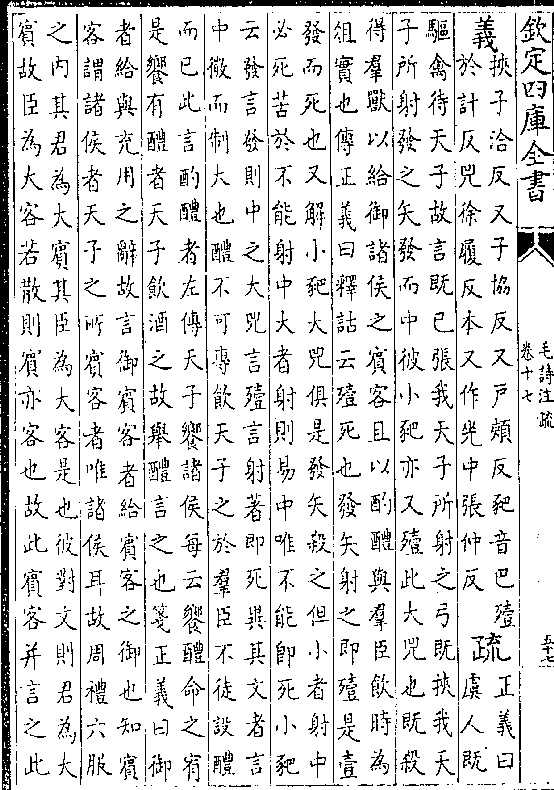 欽定四庫全書
毛詩注疏
卷十七
五十七
義
挾子洽反又子協反又戶頰反豝音巴殪
於計反兕徐履反本又作光中張仲反
疏
正義曰
虞人既
驅禽待天子故言既已張我天子所射之弓既挾我天
子所射發之矢發而中彼小豝亦又殪此大兕也既殺
得羣獸以給御諸侯之賓客且以酌醴與羣臣飲時為
俎實也傳正義曰釋詁云殪死也發矢射之即殪是壹
發而死也又解小豝大兕俱是發矢殺之但小者射中
必死苦於不能射中大者射則易中唯不能即死小豝
云發言發則中之大兕言殪言射著即死異其文者言
中微而制大也醴不可專飲天子之於羣臣不徒設醴
而已此言酌醴者左傳天子饗諸侯每云饗醴命之宥
是饗有醴者天子飲酒之故舉醴言之也箋正義曰御
者給與充用之辭故言御賓客者給賓客之御也知賓
客謂諸侯者天子之所賓客者唯諸侯耳故周禮六服
之内其君為大賓其臣為大客是也彼對文則君為大
賓故臣為大客若散則賓亦客也故此賓客并言之此